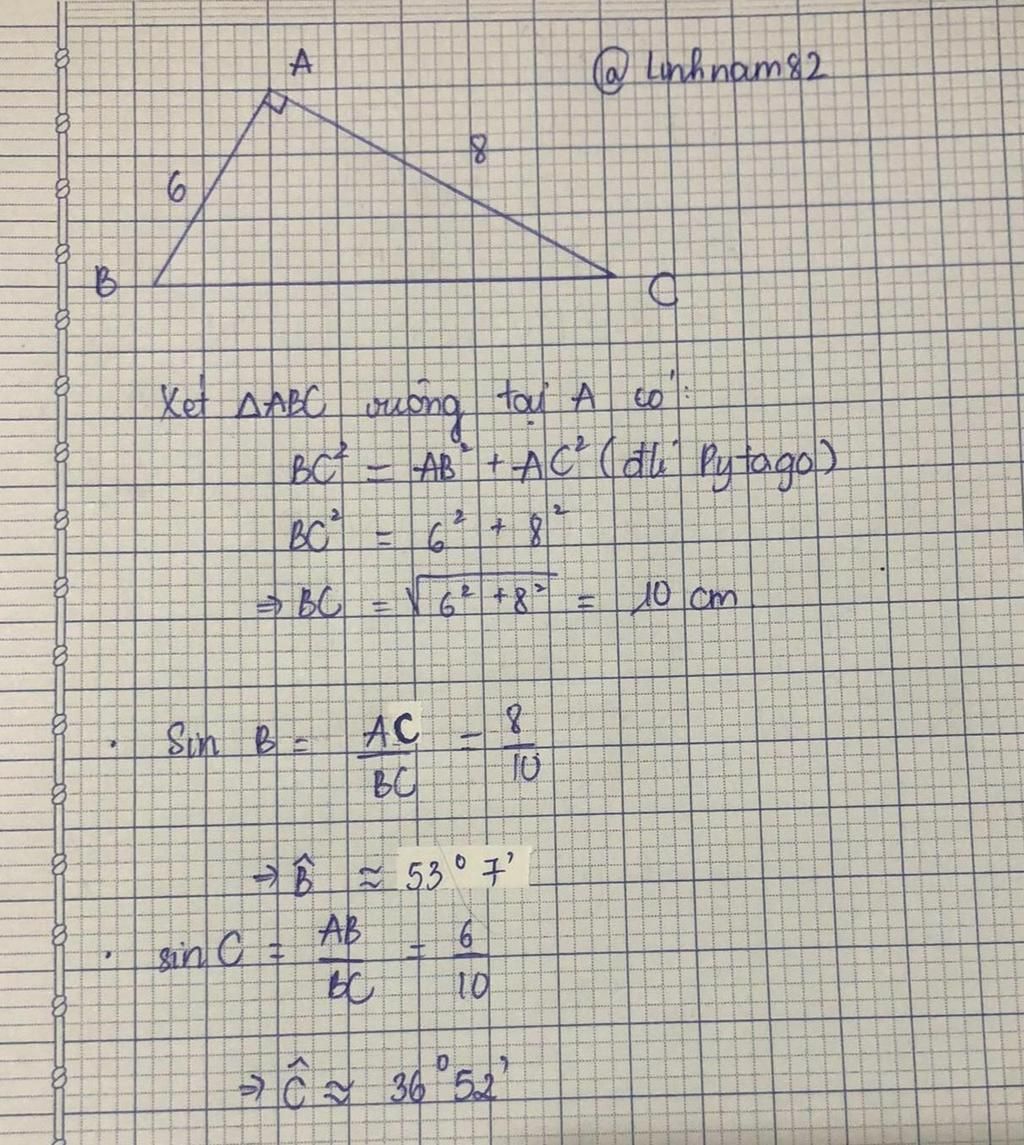 A
@ Linhnam82
8
6
B
C
Xét ΔABC vuông tại A có:
BC² = AB² + AC² (đlí Pytago)
BC² = 6² + 8²
⇒ BC = √(6² + 8²) = 10 cm
. Sin B = AC/BC = 8/10
⇒ B̂ ≈ 53° 7'
. sin C = AB/BC = 6/10
⇒ Ĉ ≈ 36° 52'